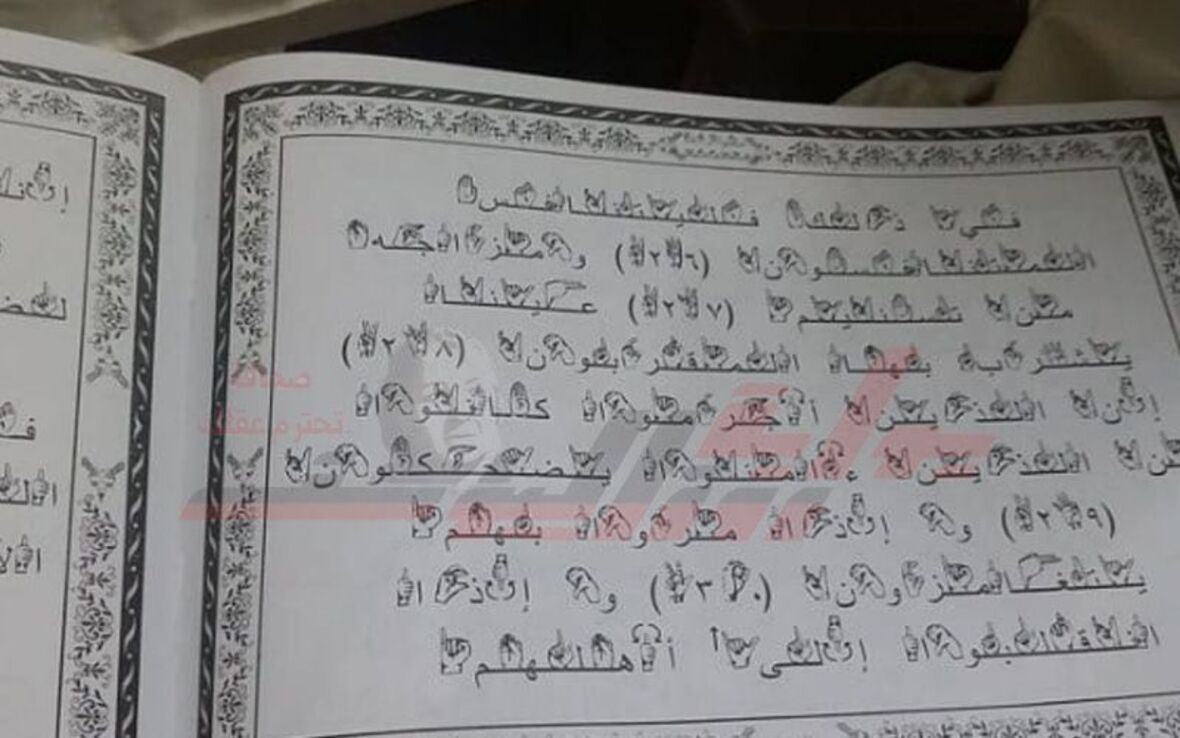 في ذلك فليتنافس
المتنافسون (٢٦) ومزاجه
من تسنيم (٢٧) عينا
يشرب بها المقربون (٢٨)
إن الذين أجرموا كانوا
من الذين ءامنوا يضحكون
(٢٩) وإذا مروا بهم
يتغامزون (٣٠) وإذا
انقلبوا إلى أهلهم
صحافة
تحترم عقلك